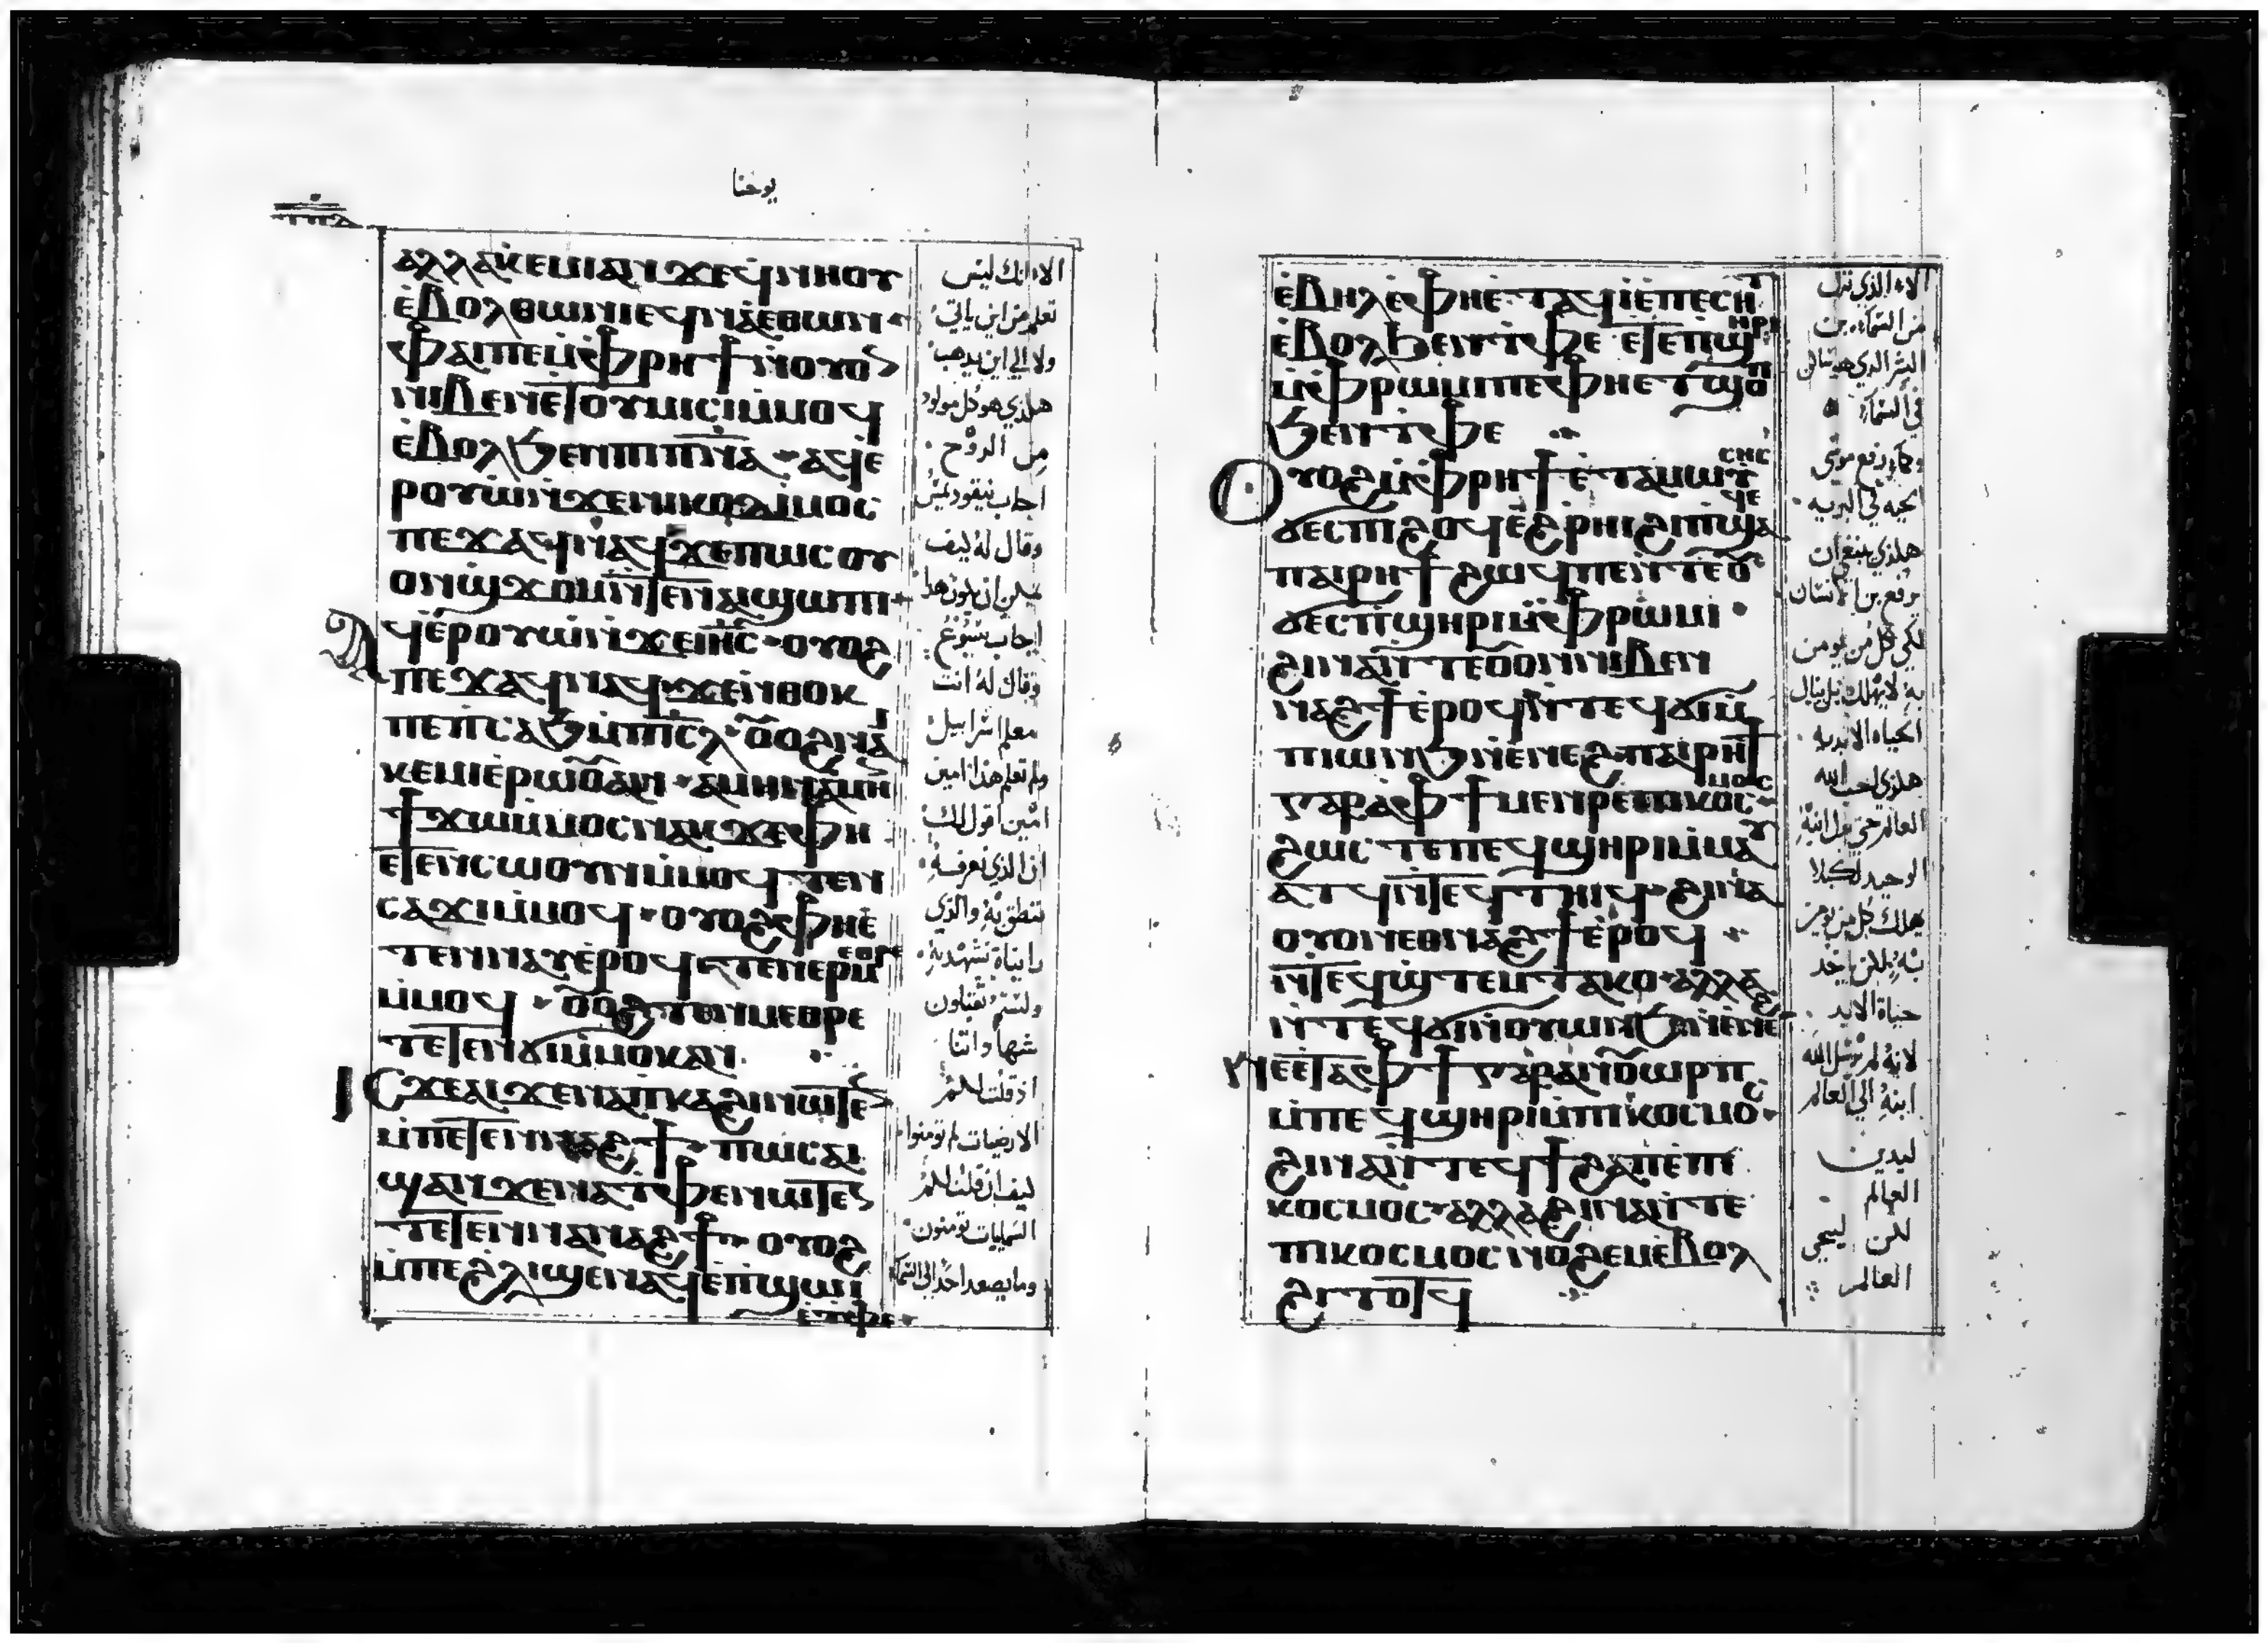 يوحنا
ⲁⲗⲗⲁ ⲕⲉⲙⲓ ⲁⲛ ϫⲉ ϥⲛⲏⲟⲩ
ⲉ̀ⲃⲟⲗ ⲑⲱⲛ ⲓⲉ ϥⲛⲁ ⲉⲑⲱⲛ
ⲫⲁⲓ ⲡⲉ ⲙ̀ⲫⲣⲏϯ ⲛⲟⲩⲟ
ⲛⲓⲃⲉⲛ ⲉⲧⲟⲩⲙⲓⲥⲓ ⲙ̀ⲙⲟϥ
ⲉ̀ⲃⲟⲗ ϧⲉⲛ ⲡⲓⲡ̅ⲛ̅ⲁ̅ ⲁϥⲉ
ⲣⲟⲩⲱ̀ ⲛ̀ϫⲉ ⲛⲓⲕⲟⲇⲓⲙⲟⲥ
ⲡⲉϫⲁϥ ⲛⲁϥ ϫⲉ ⲡⲱⲥ ⲟⲩ
ⲟⲛ ϣϫⲟⲙ ⲛ̀ⲧⲉ ⲛⲁⲓ ϣⲱⲡⲓ
ⲁϥⲉ̀ⲣⲟⲩⲱ̀ ⲛ̀ϫⲉ ⲓⲏ̅ⲥ̅ ⲟⲩⲟϩ
ⲡⲉϫⲁϥ ⲛⲁϥ ϫⲉ ⲛ̀ⲑⲟⲕ
ⲡⲉ ⲡⲥⲁϧ ⲙ̀ⲡⲓⲥ̅ⲗ̅ ⲟⲩⲟϩ ⲛⲁⲓ
ⲕⲉⲙⲓ ⲉ̀ⲣⲱⲟⲩ ⲁⲛ ⲁⲙⲏⲛ ⲁⲙⲏⲛ
ϯϫⲱ ⲙ̀ⲙⲟⲥ ⲛⲁⲕ ϫⲉ ⲫⲏ
ⲉⲧⲉⲛⲥⲱⲟⲩⲛ ⲙ̀ⲙⲟϥ ⲧⲉⲛ
ⲥⲁϫⲓ ⲙ̀ⲙⲟϥ ⲟⲩⲟϩ ⲫⲏⲉ̀
ⲧⲉⲛⲛⲁⲩ ⲉ̀ⲣⲟϥ ⲧⲉⲛⲉⲣⲙⲉⲑⲣⲉ
ⲙ̀ⲙⲟϥ ⲟⲩⲟϩ ⲧⲉⲛⲙⲉⲑⲣⲉ
ⲧⲉⲧⲉⲛϭⲓ ⲙ̀ⲙⲟⲥ ⲁⲛ
ⲓⲥϫⲉ ⲁⲓϫⲉ ⲛⲁ ⲡⲕⲁϩⲓ ⲛⲱⲧⲉⲛ
ⲙ̀ⲡⲉⲧⲉⲛⲛⲁϩϯ ⲡⲱⲥ ⲁⲓ
ϣⲁⲛϫⲉ ⲛⲁ ⲧⲫⲉ ⲛⲱⲧⲉⲛ
ⲧⲉⲧⲉⲛⲛⲁⲛⲁϩϯ ⲟⲩⲟϩ
ⲙ̀ⲡⲉ ϩⲗⲓ ϣⲉⲛⲁϥ ⲉ̀ⲡϣⲱⲓ
ⲉ̀ⲧⲫⲉ
الا انك ليس
تعلم من اين ياتي
ولا الي اين يدهب
هكدي هو كل مولود
من الروح
اجاب نيقوديمس
وقال له كيف
يمكن ان يكون هدا
اجاب يسوع
وقال له انت
معلم اسراييل
ولم تعلم هدا امين
امين اقول لك
ان الذي نعرفه
ننطق به والذي
رايناه نشهد به
ولستم تقبلون
شهادتنا
اذ قلت لكم
الارضيات لم تومنوا
كيف ان قلت لكم
السمايات تومنون
وما يصعد احد الى السما
ⲉ̀ⲃⲏⲗ ⲉ̀ⲫⲏⲉ̀ⲧⲁϥⲓ̀ ⲉ̀ⲡⲉⲥⲏⲧ
ⲉ̀ⲃⲟⲗ ϧⲉⲛ ⲧⲫⲉ ⲉⲧⲉ ⲡϣⲏⲣⲓ
ⲙ̀ⲫⲣⲱⲙⲓ ⲡⲉ ⲫⲏⲉⲧϣⲟⲡ
ϧⲉⲛ ⲧⲫⲉ
ⲟⲩⲟϩ ⲙ̀ⲫⲣⲏϯ ⲉ̀ⲧⲁ ⲙⲱⲩⲥⲏⲥ
ϭⲉⲥ ⲡⲓϩⲟϥ ⲉ̀ϩⲣⲏⲓ ϩⲓ ⲡϣⲁϥⲉ
ⲡⲁⲓⲣⲏϯ ϩⲱϥ ⲡⲉ ⲛ̀ⲧⲉⲟⲩ
ϭⲉⲥ ⲡϣⲏⲣⲓ ⲙ̀ⲫⲣⲱⲙⲓ
ϩⲓⲛⲁ ⲛ̀ⲧⲉ ⲟⲩⲟⲛ ⲛⲓⲃⲉⲛ
ⲛⲁϩϯ ⲉ̀ⲣⲟϥ ⲛ̀ⲧⲉϥϭⲓ ⲙ̀
ⲡⲓⲱⲛϧ ⲛ̀ⲉⲛⲉϩ ⲡⲁⲓⲣⲏϯ
ⲅⲁⲣ ⲁ ⲫϯ ⲙⲉⲛⲣⲉ ⲡⲓⲕⲟⲥⲙⲟⲥ
ϩⲱⲥⲧⲉ ⲡⲉϥϣⲏⲣⲓ ⲙ̀ⲙⲁⲩ
ⲁⲧϥ ⲛ̀ⲧⲉϥⲧⲏⲓϥ ϩⲓⲛⲁ
ⲟⲩⲟⲛ ⲉⲑⲛⲁϩϯ ⲉ̀ⲣⲟϥ
ⲛ̀ⲧⲉϥϣⲧⲉⲙⲧⲁⲕⲟ ⲁⲗⲗⲁ
ⲛ̀ⲧⲉϥϭⲓ ⲛ̀ⲟⲩⲱⲛϧ ⲛ̀ⲉⲛⲉϩ
ⲛⲉⲧⲁ ⲫϯ ⲅⲁⲣ ⲁⲛ ⲟⲩⲱⲣⲡ
ⲙ̀ⲡⲉϥϣⲏⲣⲓ ⲙ̀ⲡⲓⲕⲟⲥⲙⲟⲥ
ϩⲓⲛⲁ ⲛ̀ⲧⲉϥϯϩⲁⲡ ⲉ̀ⲡⲓ
ⲕⲟⲥⲙⲟⲥ ⲁⲗⲗⲁ ϩⲓⲛⲁ ⲛ̀ⲧⲉ
ⲡⲓⲕⲟⲥⲙⲟⲥ ⲛⲟϩⲉⲙ ⲉ̀ⲃⲟⲗ
ϩⲓⲧⲟⲧϥ
الا الذي نزل
من السماء بن
البشر الذي هو ساكن
في السماء
وكما رفع موسى
الحيه في البريه
هكذي ينبغي ان
يرفع بن الانسان
لكي كل من يومن
به لا يهلك بل ينال
الحياه الابديه
هكذي احب الله
العالم حتى بدل ابنه
الوحيد لكيلا
يهلك كل من يومن
به لكن ياخد
حياة الابد
لانه لم يرسل الله
ابنه الي العالم
ليدين
العالم
لكن ليحيى
العالم